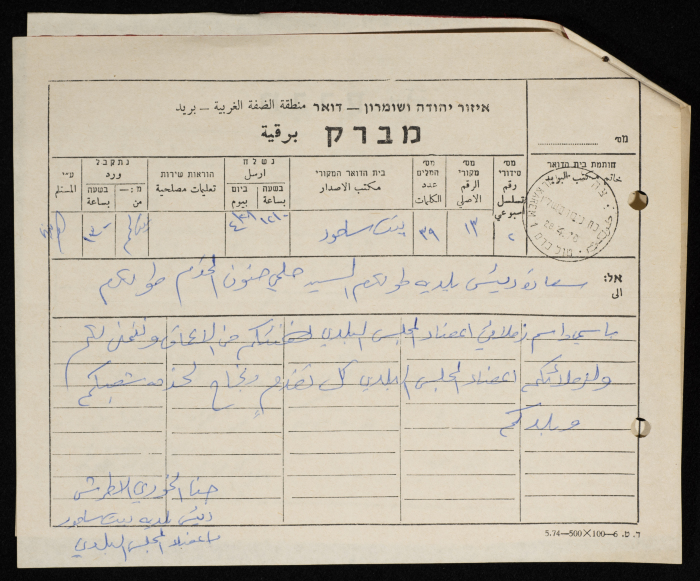 איזור יהודה ושומרון – דואר منطقة الضفة الغربية – بريد
מברק برقية
מס׳
חותמת בית הדואר
خاتم مكتب البريد
מס׳ סידורי رقم تسلسل اسبوعي
מס׳ מקורי الرقم الاصلي
מס׳ המלים عدد الكلمات
בית הדואר המקורי مكتب الاصدار
נשלח ارسل
בשעה بساعة
ביום بيوم
הוראות שירות تعليمات مصلحية
נתקבל ورد
מ:— من
בשעה بساعة
ע״י المستلم
٢
١٣
٣٩
بيت ساحور
אל: سعادة رئيس بلديه طولكرم السيد حلمي حنون المحترم طولكرم
الى
باسمي واسم زملائي اعضاء المجلس البلدي نهنئكم من الاعماق ونتمنى لكم
ولزملائكم اعضاء المجلس البلدي كل تقدم ونجاح لخدمه شعبكم
وبلدكم
حنا الخوري الاطرش
رئيس بلديه بيت ساحور
واعضاء المجلس البلدي
ד. ט. 6—100×500—5.74